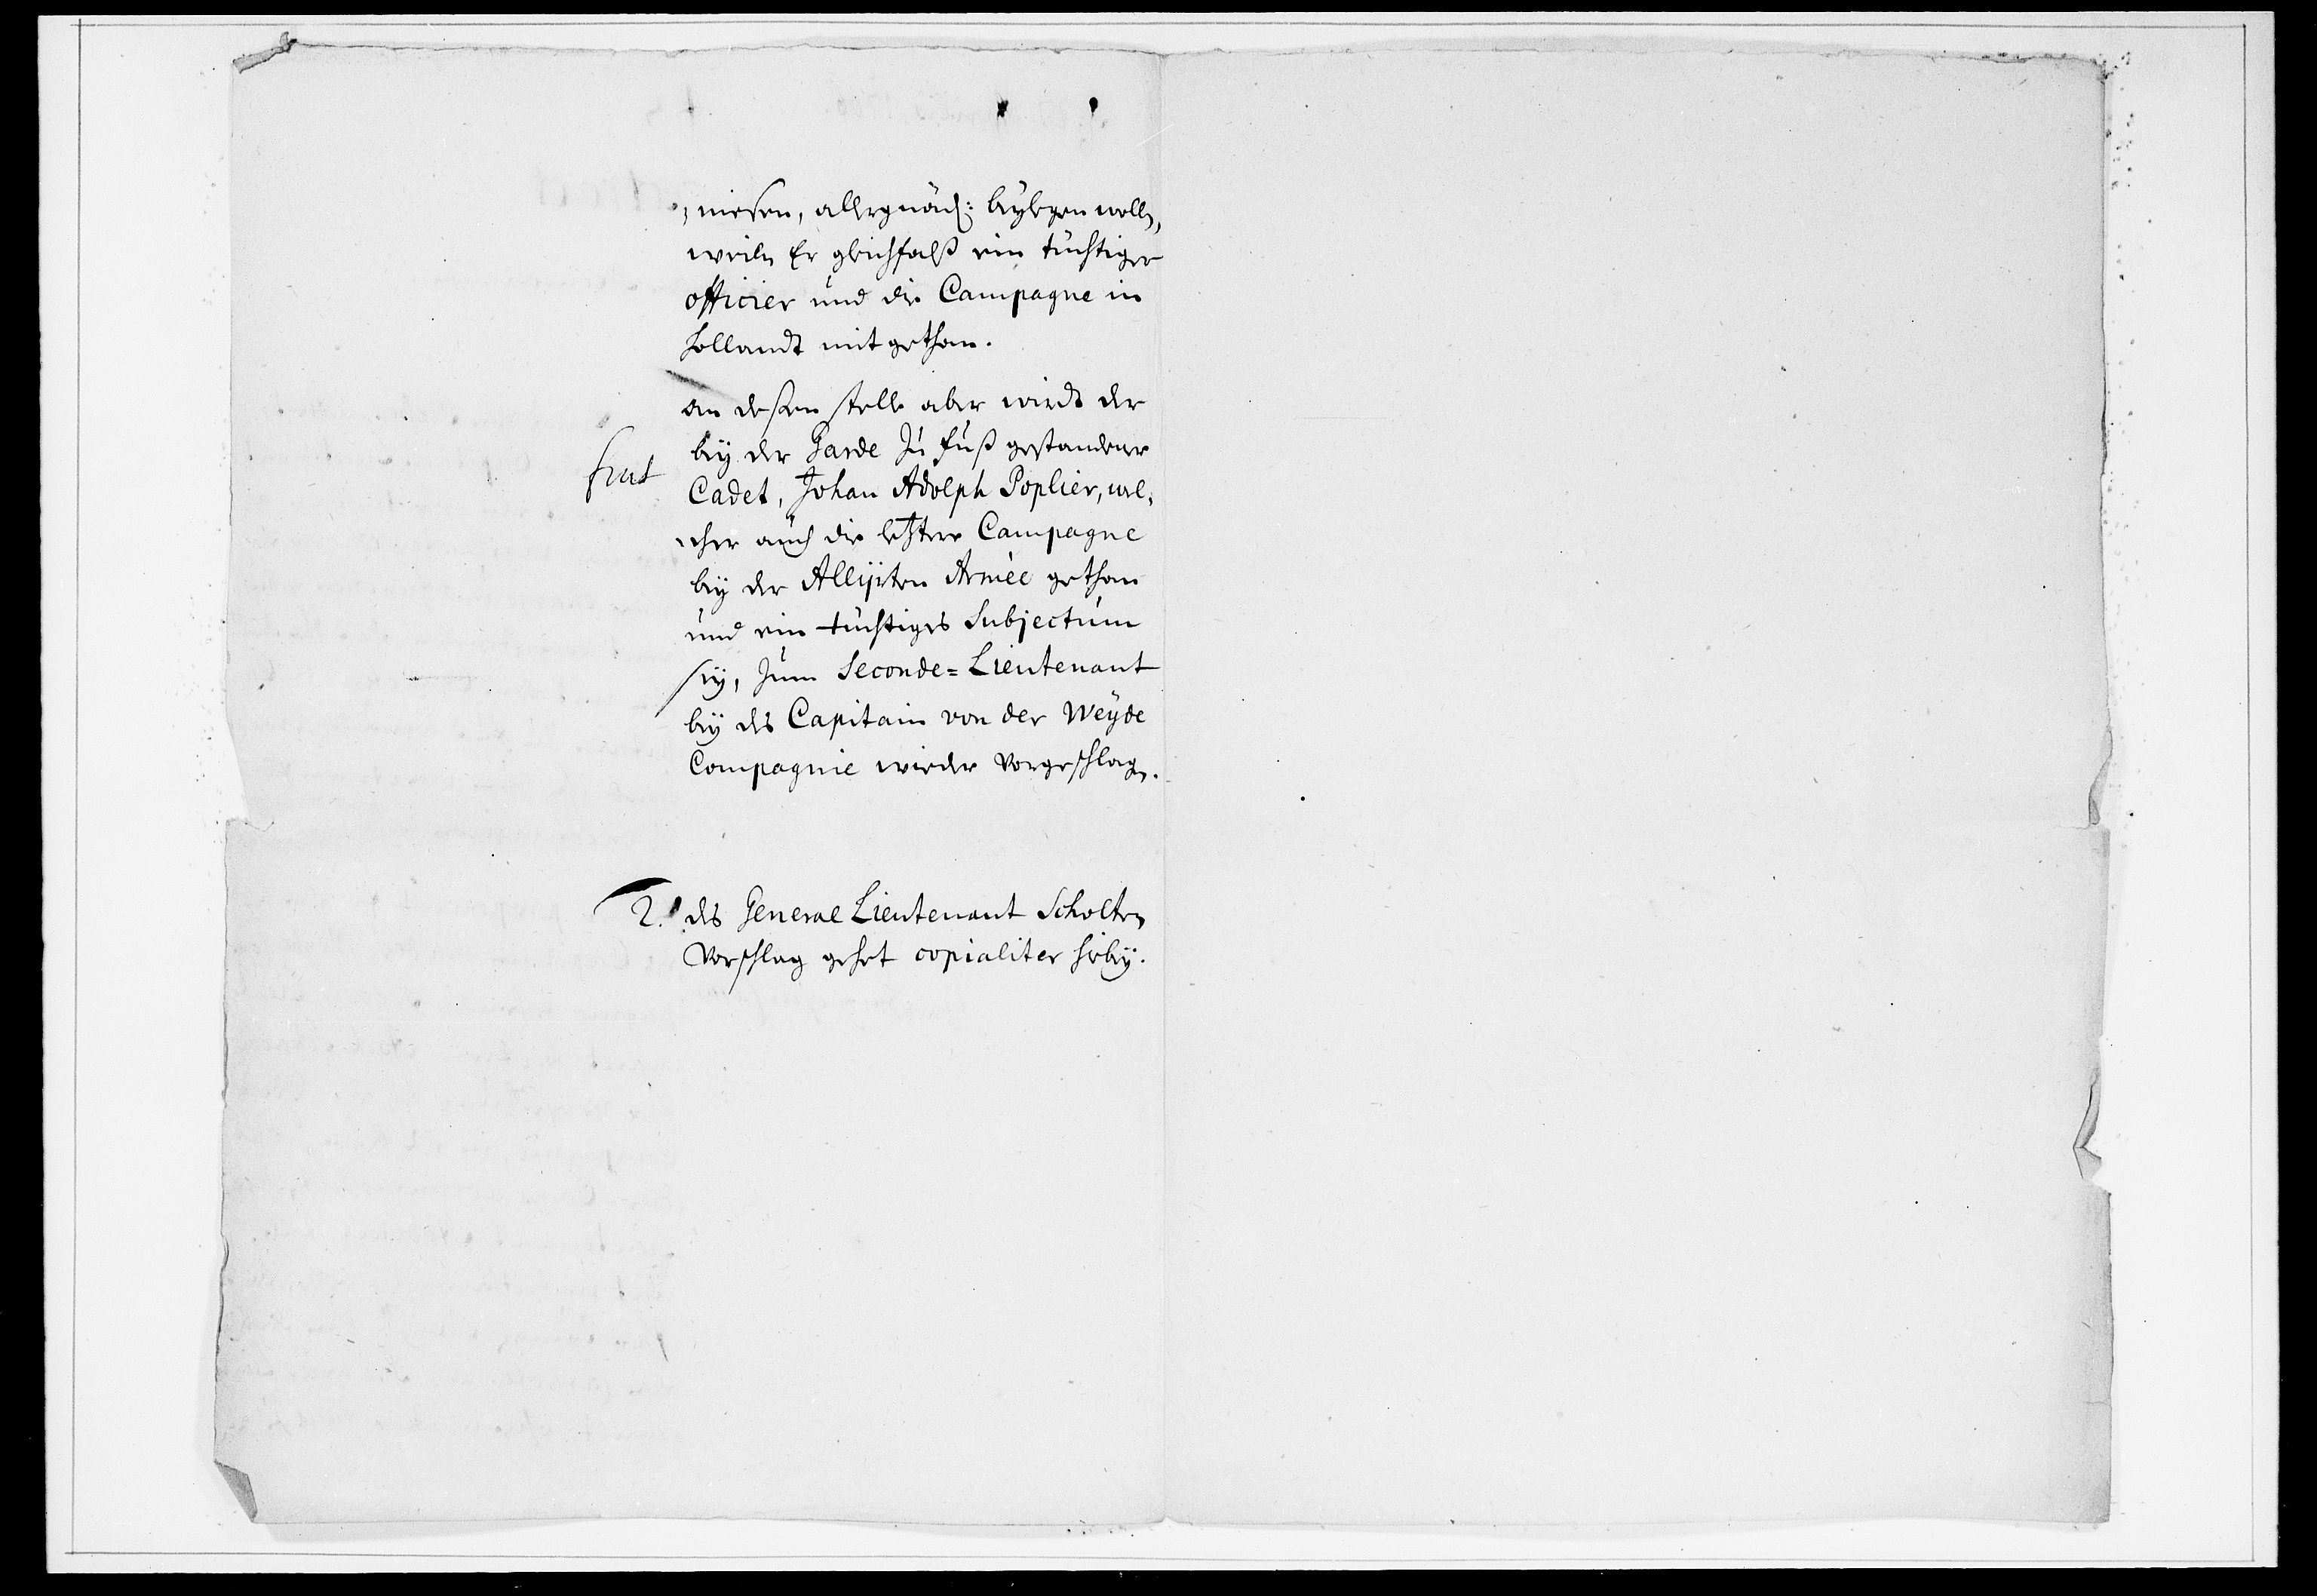 niesen, allergnäd: beÿlegen wolln,
weiln Er gleichfalß ein tüchtiger
officier und die Campagne in
Hollandt mit gethan.
an deßen stelle aber wirdt der
beÿ der Garde zu Fuß gestandener
fiat
Cadet, Johan Adolph Poplier, wel,
cher auch die letztere Campagne
beÿ der Allijrten Armée gethan
und ein tüchtiges Subjectum
seÿ, zum Seconde=Lieutenant
beÿ des Capitain von der Weÿde
Compagnie wieder Vorgeschlagn.
2. des General Lieutenant Scholten
Vorschlag gehet copialiter hiebeÿ.